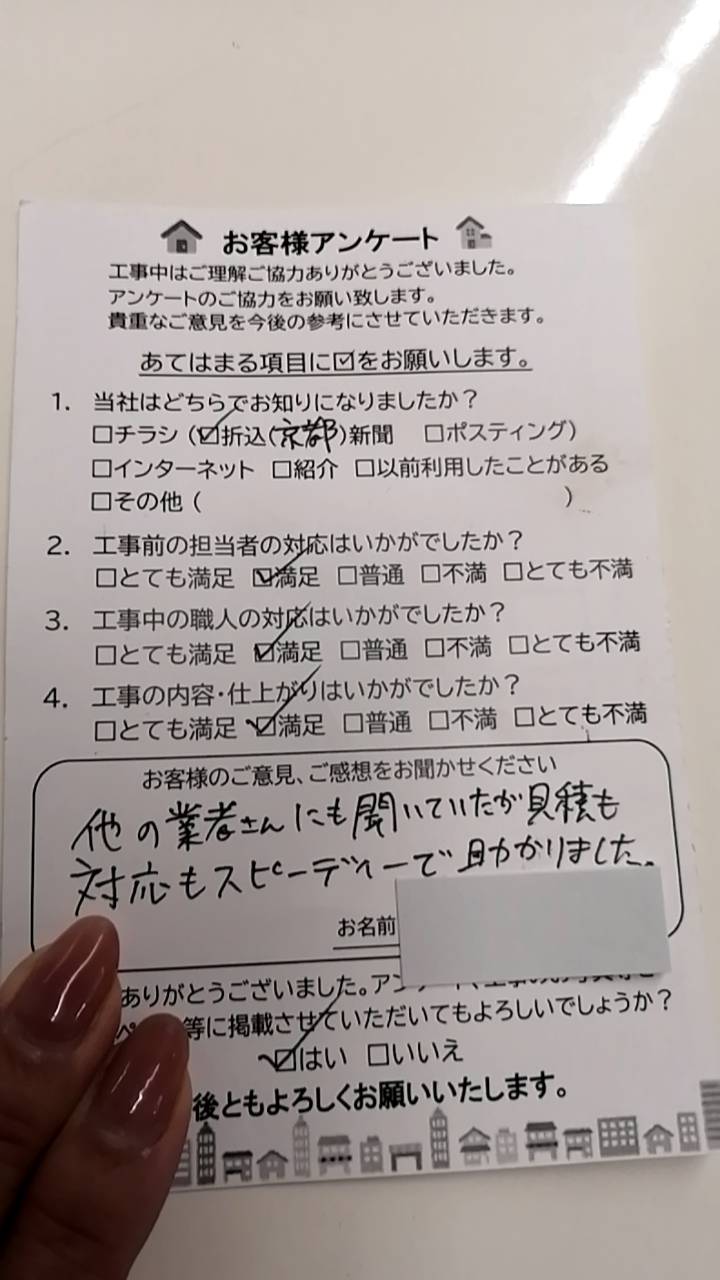 お客様アンケート
工事中はご理解ご協力ありがとうございました。
アンケートのご協力をお願い致します。
貴重なご意見を今後の参考にさせていただきます。
あてはまる項目に☑をお願いします。
1. 当社はどちらでお知りになりましたか？
□チラシ（☑折込(京都)新聞 □ポスティング）
□インターネット □紹介 □以前利用したことがある
□その他（ ）
2. 工事前の担当者の対応はいかがでしたか？
□とても満足 ☑満足 □普通 □不満 □とても不満
3. 工事中の職人の対応はいかがでしたか？
□とても満足 ☑満足 □普通 □不満 □とても不満
4. 工事の内容・仕上がりはいかがでしたか？
□とても満足 ☑満足 □普通 □不満 □とても不満
お客様のご意見、ご感想をお聞かせください
他の業者さんにも聞いていたが見積も
対応もスピーディーで助かりました。
お名前
ありがとうございました。アン
等に掲載させていただいてもよろしいでしょうか？
☑はい □いいえ
後ともよろしくお願いいたします。